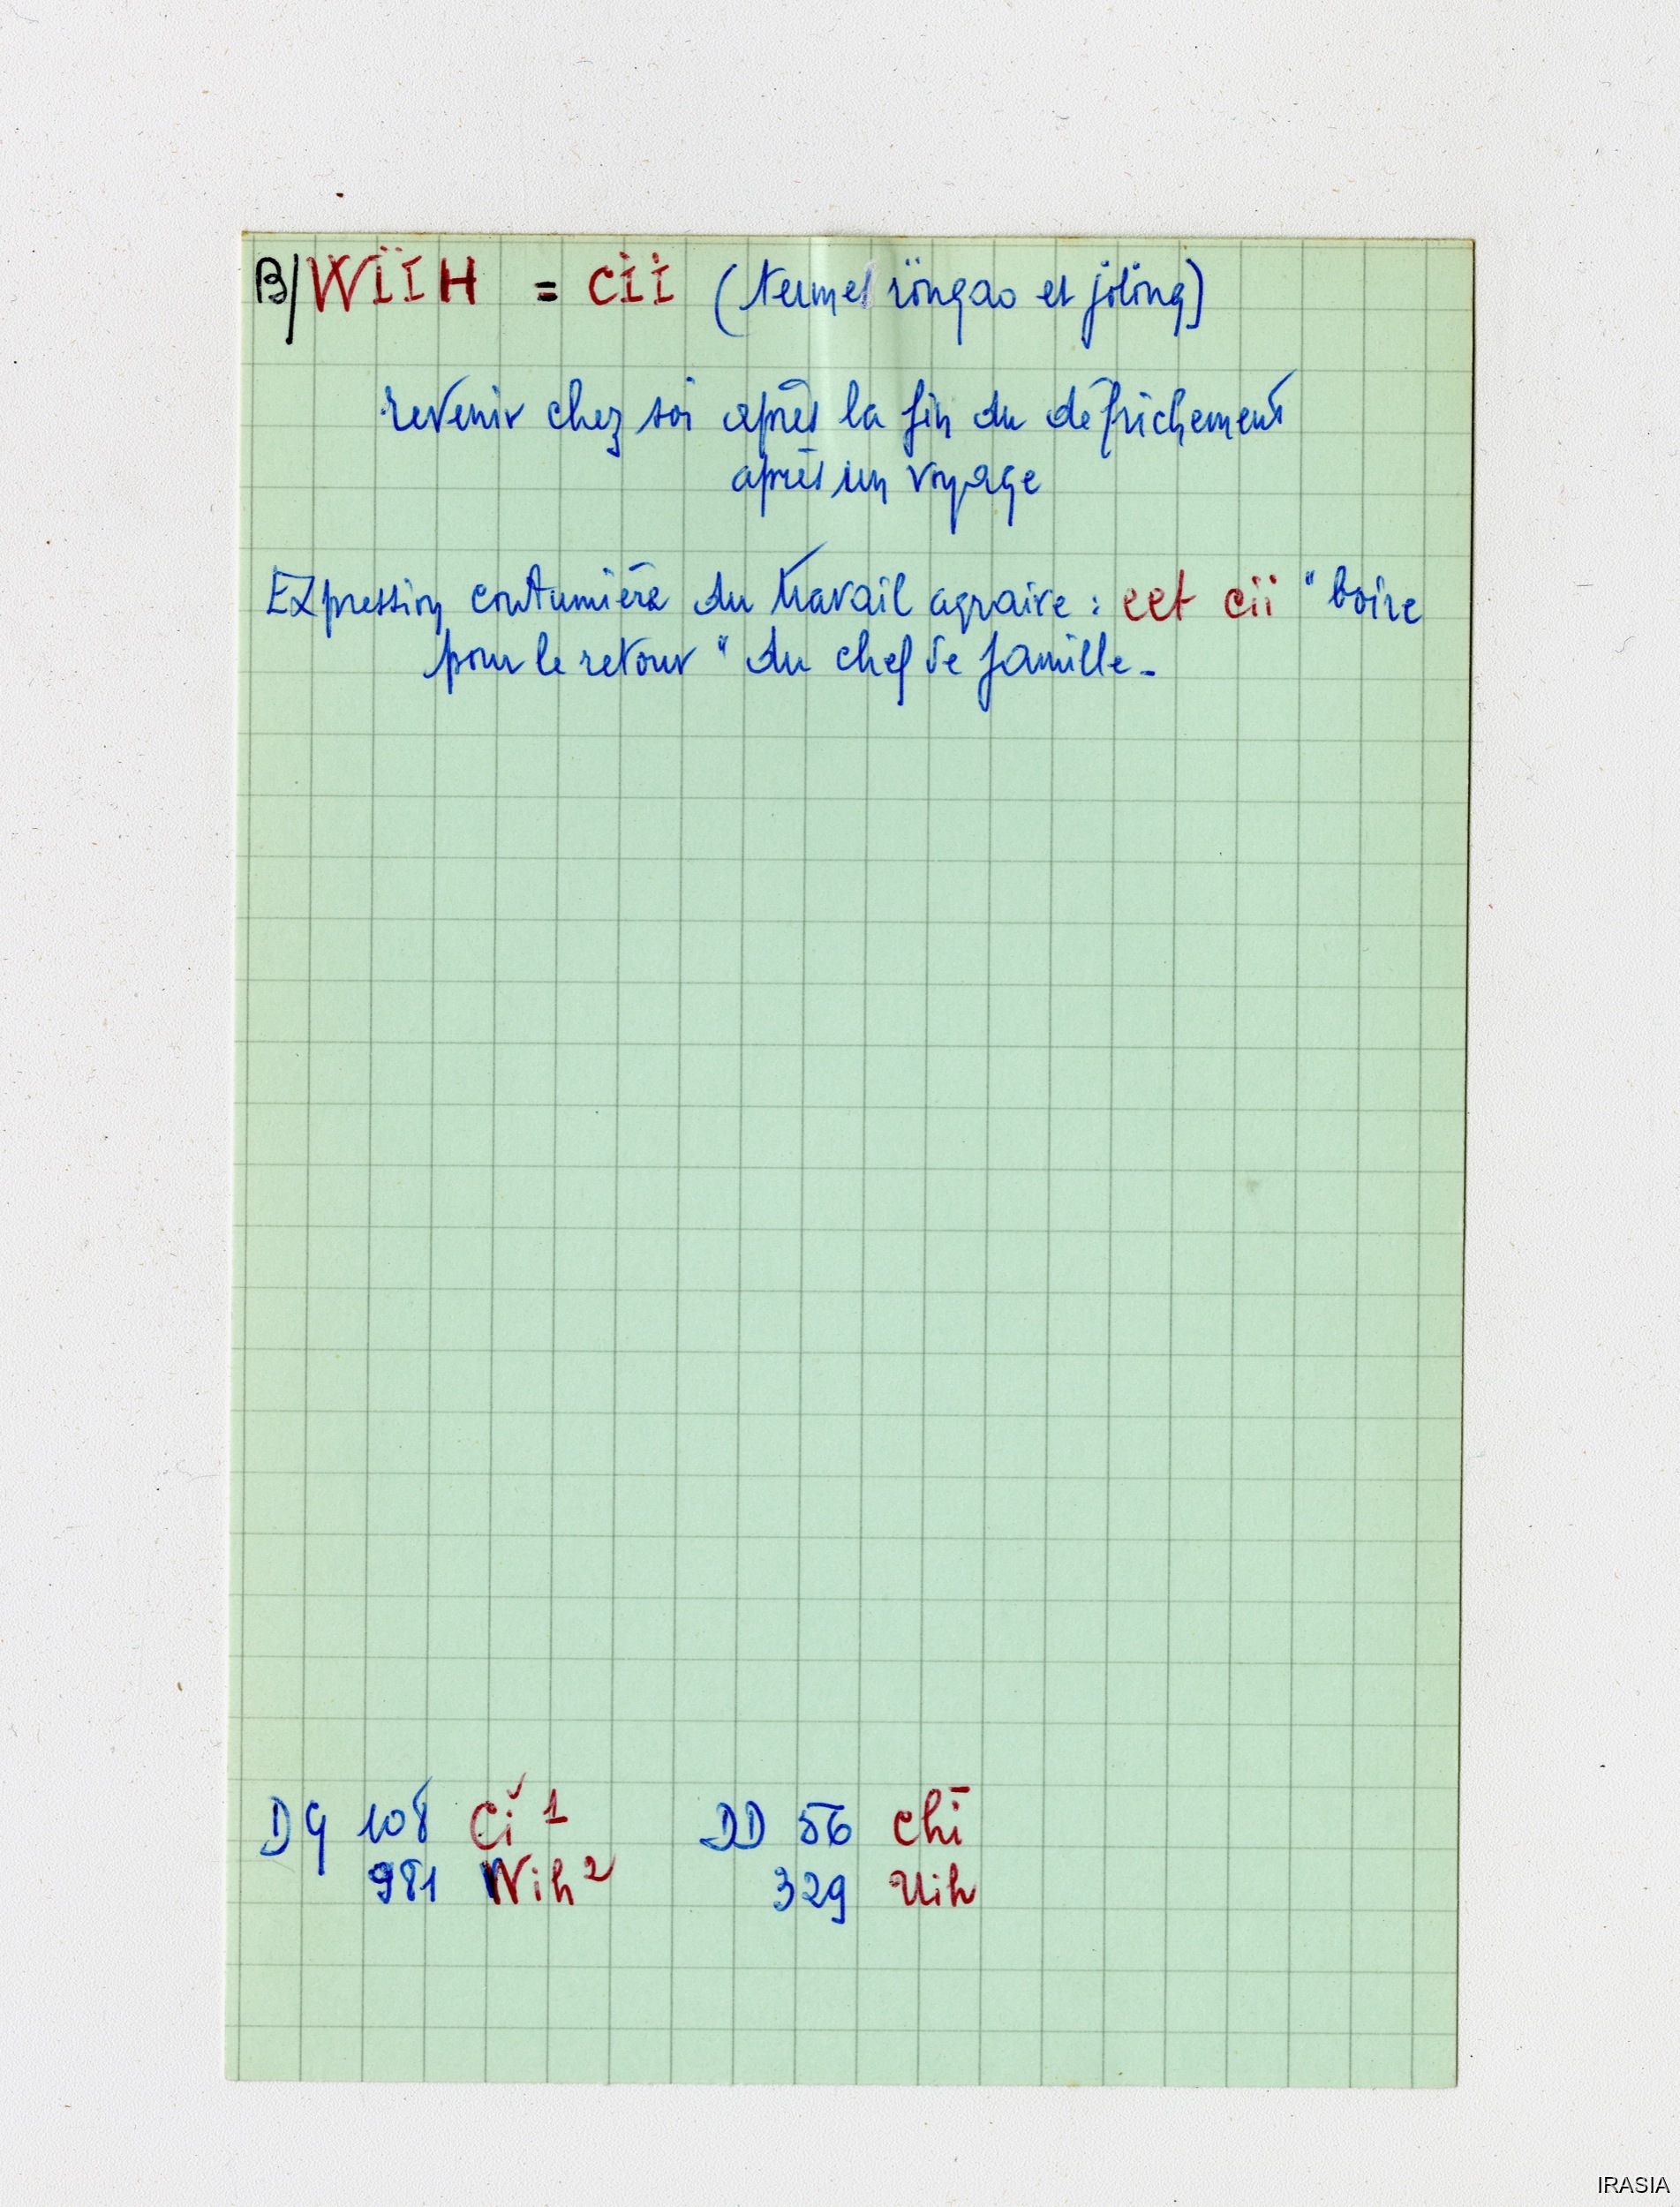 B/ WIIH = cii (termes röngao et jölöng)
revenir chez soi après la fin du défrichement
après un voyage
Expression coutumière du travail agraire : eet cii "boire
pour le retour" du chef de famille.
DG 108 Cĭ 1 DD 56 chĭ
981 Wih 2 329 Uih
IRASIA